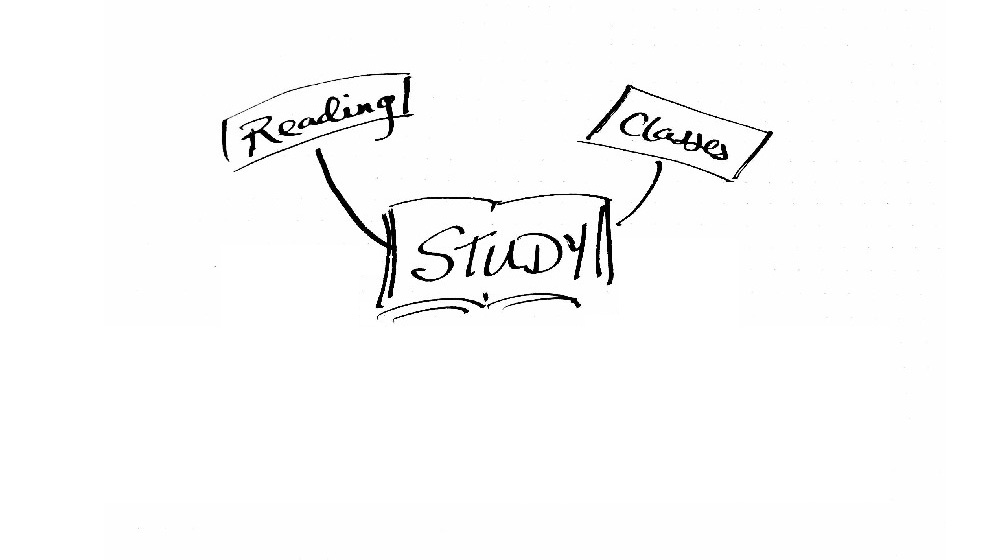 Reading
Classes
STUDY